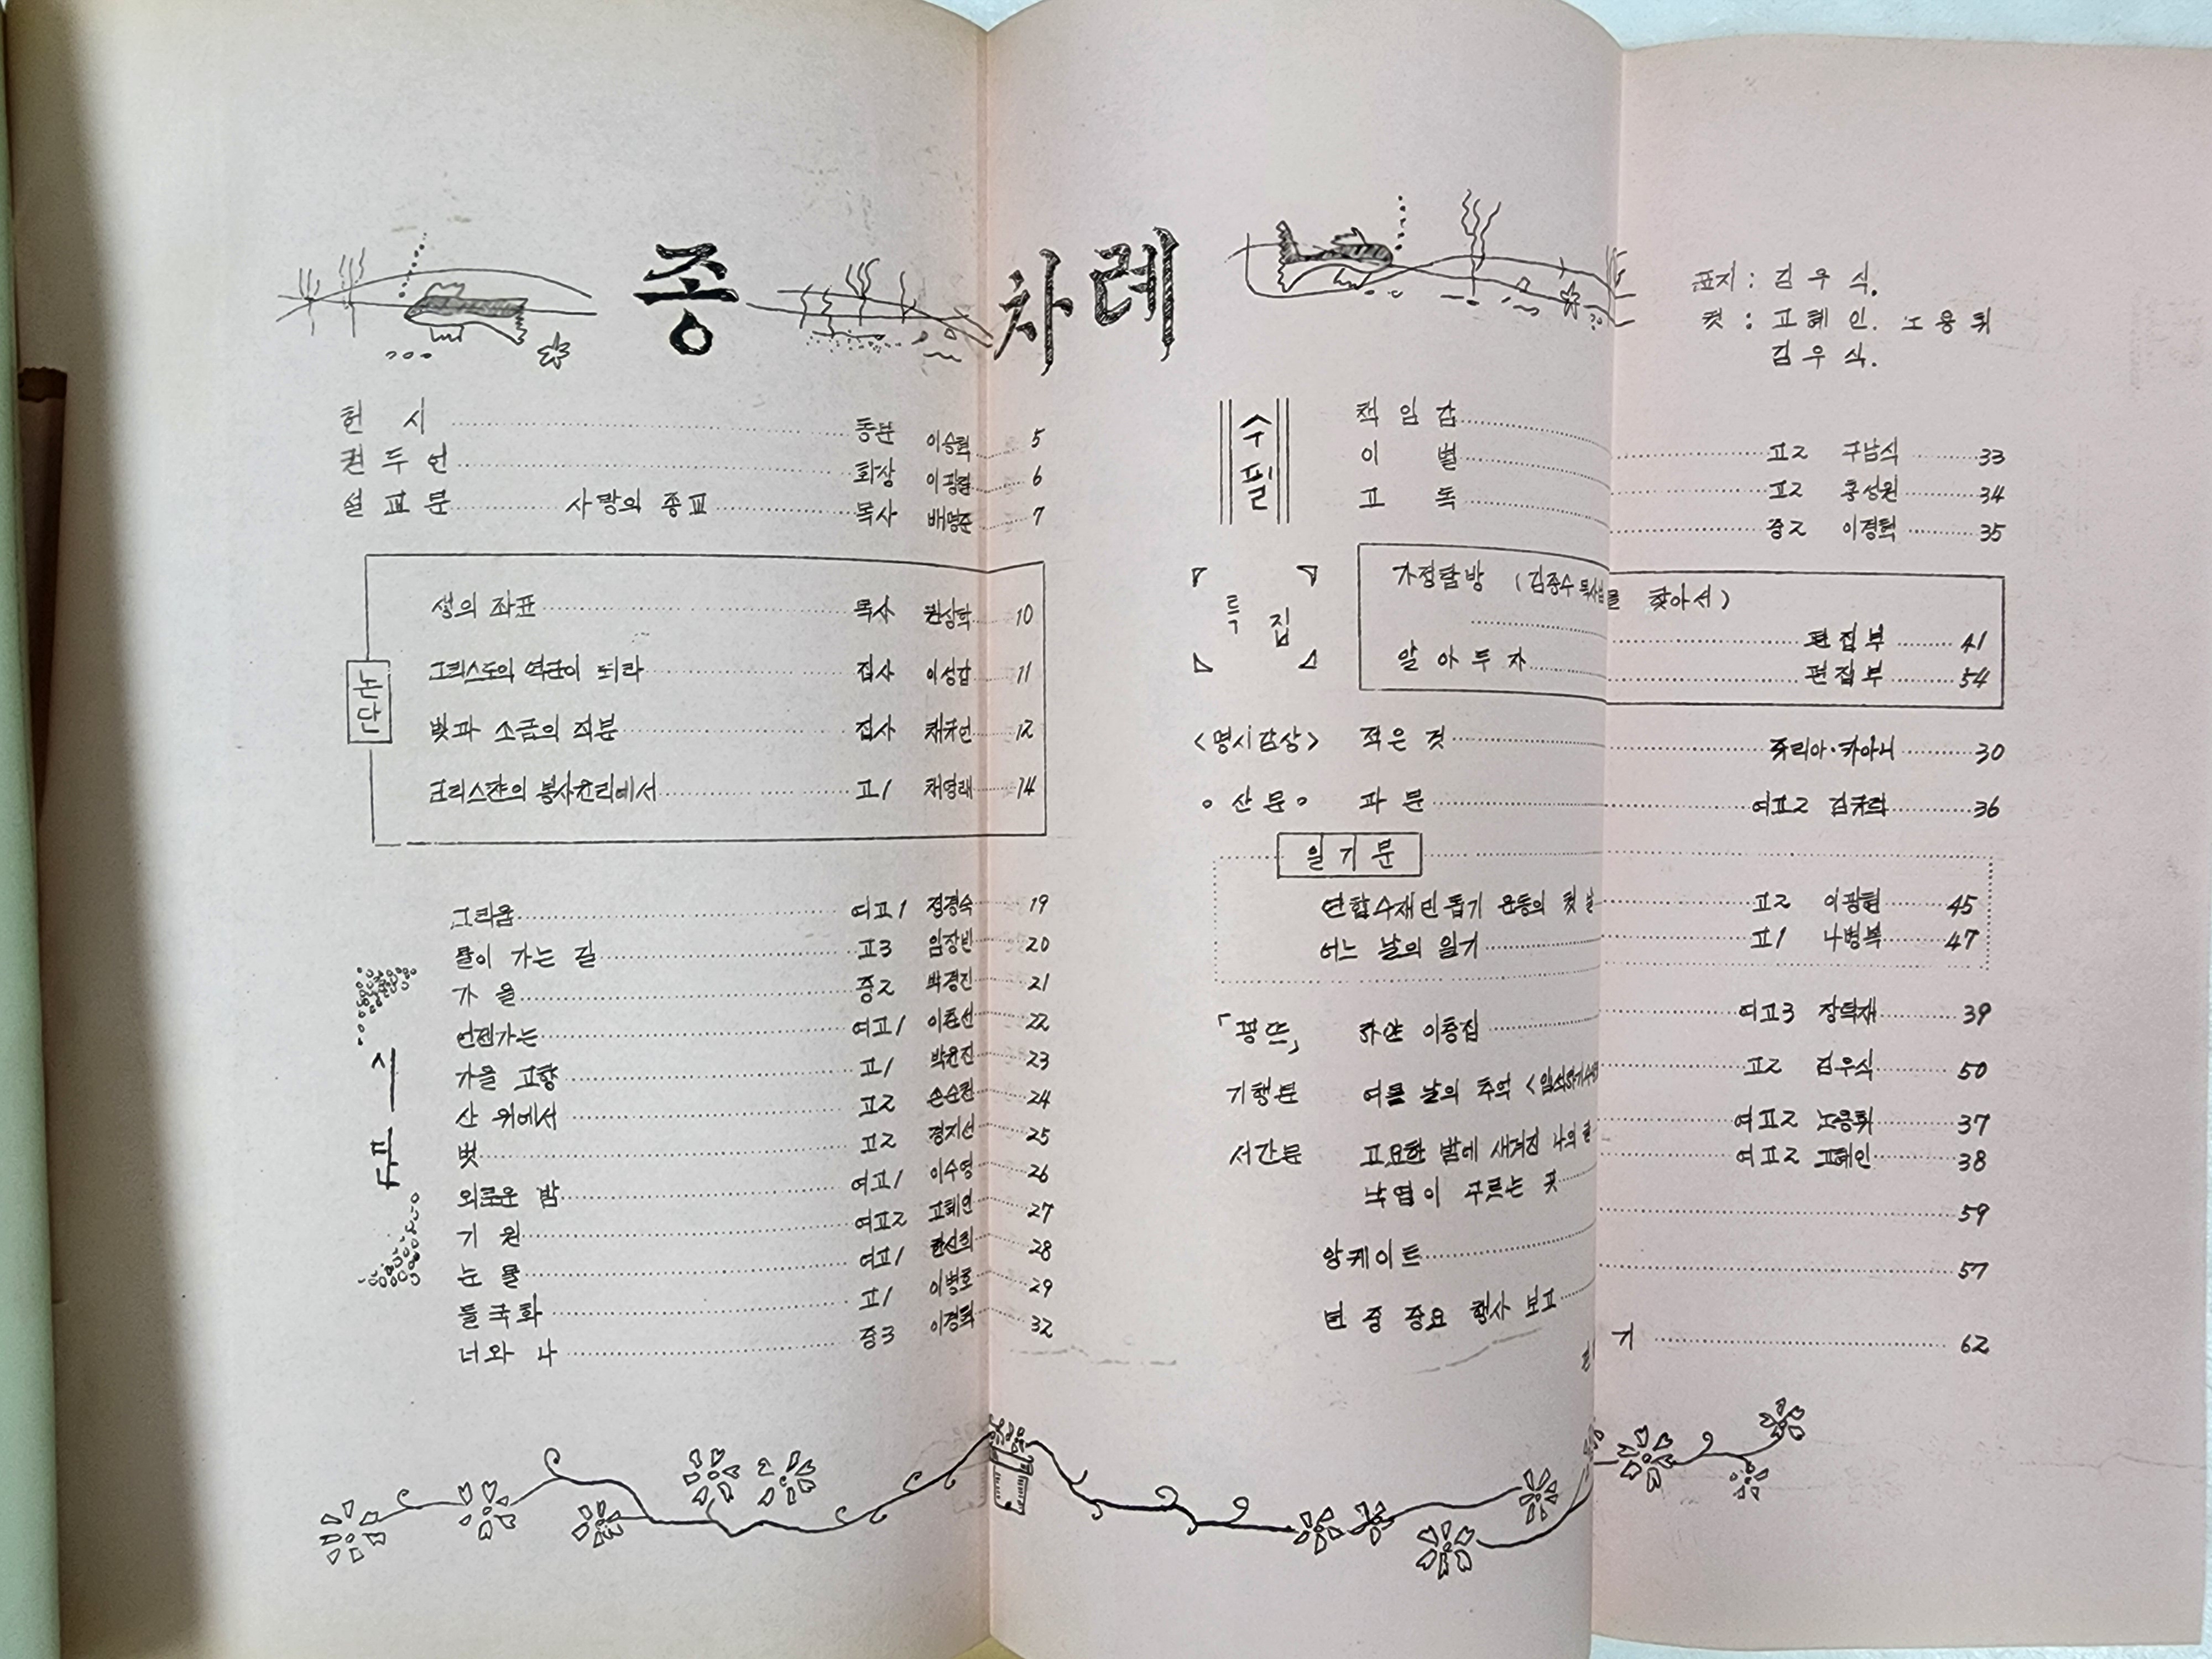 종 차례
표지: 김우식.
컷: 고혜인. 노용휘
김우식.
헌 시 동문 이승혁 5
권두언 회장 이광렬 6
설교문 사랑의 종교 목사 배명준 7
논단
성의 좌표 목사 권상학 10
그리스도의 역군이 되라 집사 이성갑 11
빛과 소금의 직분 집사 채규언 12
크리스챤의 봉사윤리에서 고1 채영래 14
시단
그리움 여고1 정경숙 19
물이 가는 길 고3 임장빈 20
가 을 중2 박경진 21
언젠가는 여고1 이춘선 22
가을 고향 고1 박윤진 23
산 위에서 고2 손순권 24
벗 고2 경지선 25
외로운 밤 여고1 이수영 26
기 원 여고2 고혜인 27
눈 물 여고1 한선희 28
들국화 고1 이병로 29
너와 나 중3 이경희 32
수필
책임감 고2 구남식 33
이 별 고2 홍성원 34
고 독 중2 이경혁 35
특집
가정탐방 (김종수 목사님을 찾아서)
편집부 41
알아두자 편집부 54
<명시감상> 적은 것 쥬리아·카아니 30
∘산문∘ 파문 여고2 김규혁 36
일기문
연합수재민돕기 운동의 첫 날 고2 이광렬 45
어느 날의 일기 고1 나병복 47
「꽁뜨」 하얀 이층집 여고3 장덕재 39
기행문 여름 날의 추억 < 고2 김우식 50
서간문 고요한 밤에 새겨진 나의 여고2 노용휘 37
낙엽이 구르는 곳 여고2 고혜인 38
앙케이트 59
년중 중요 행사 보고 57
기 62